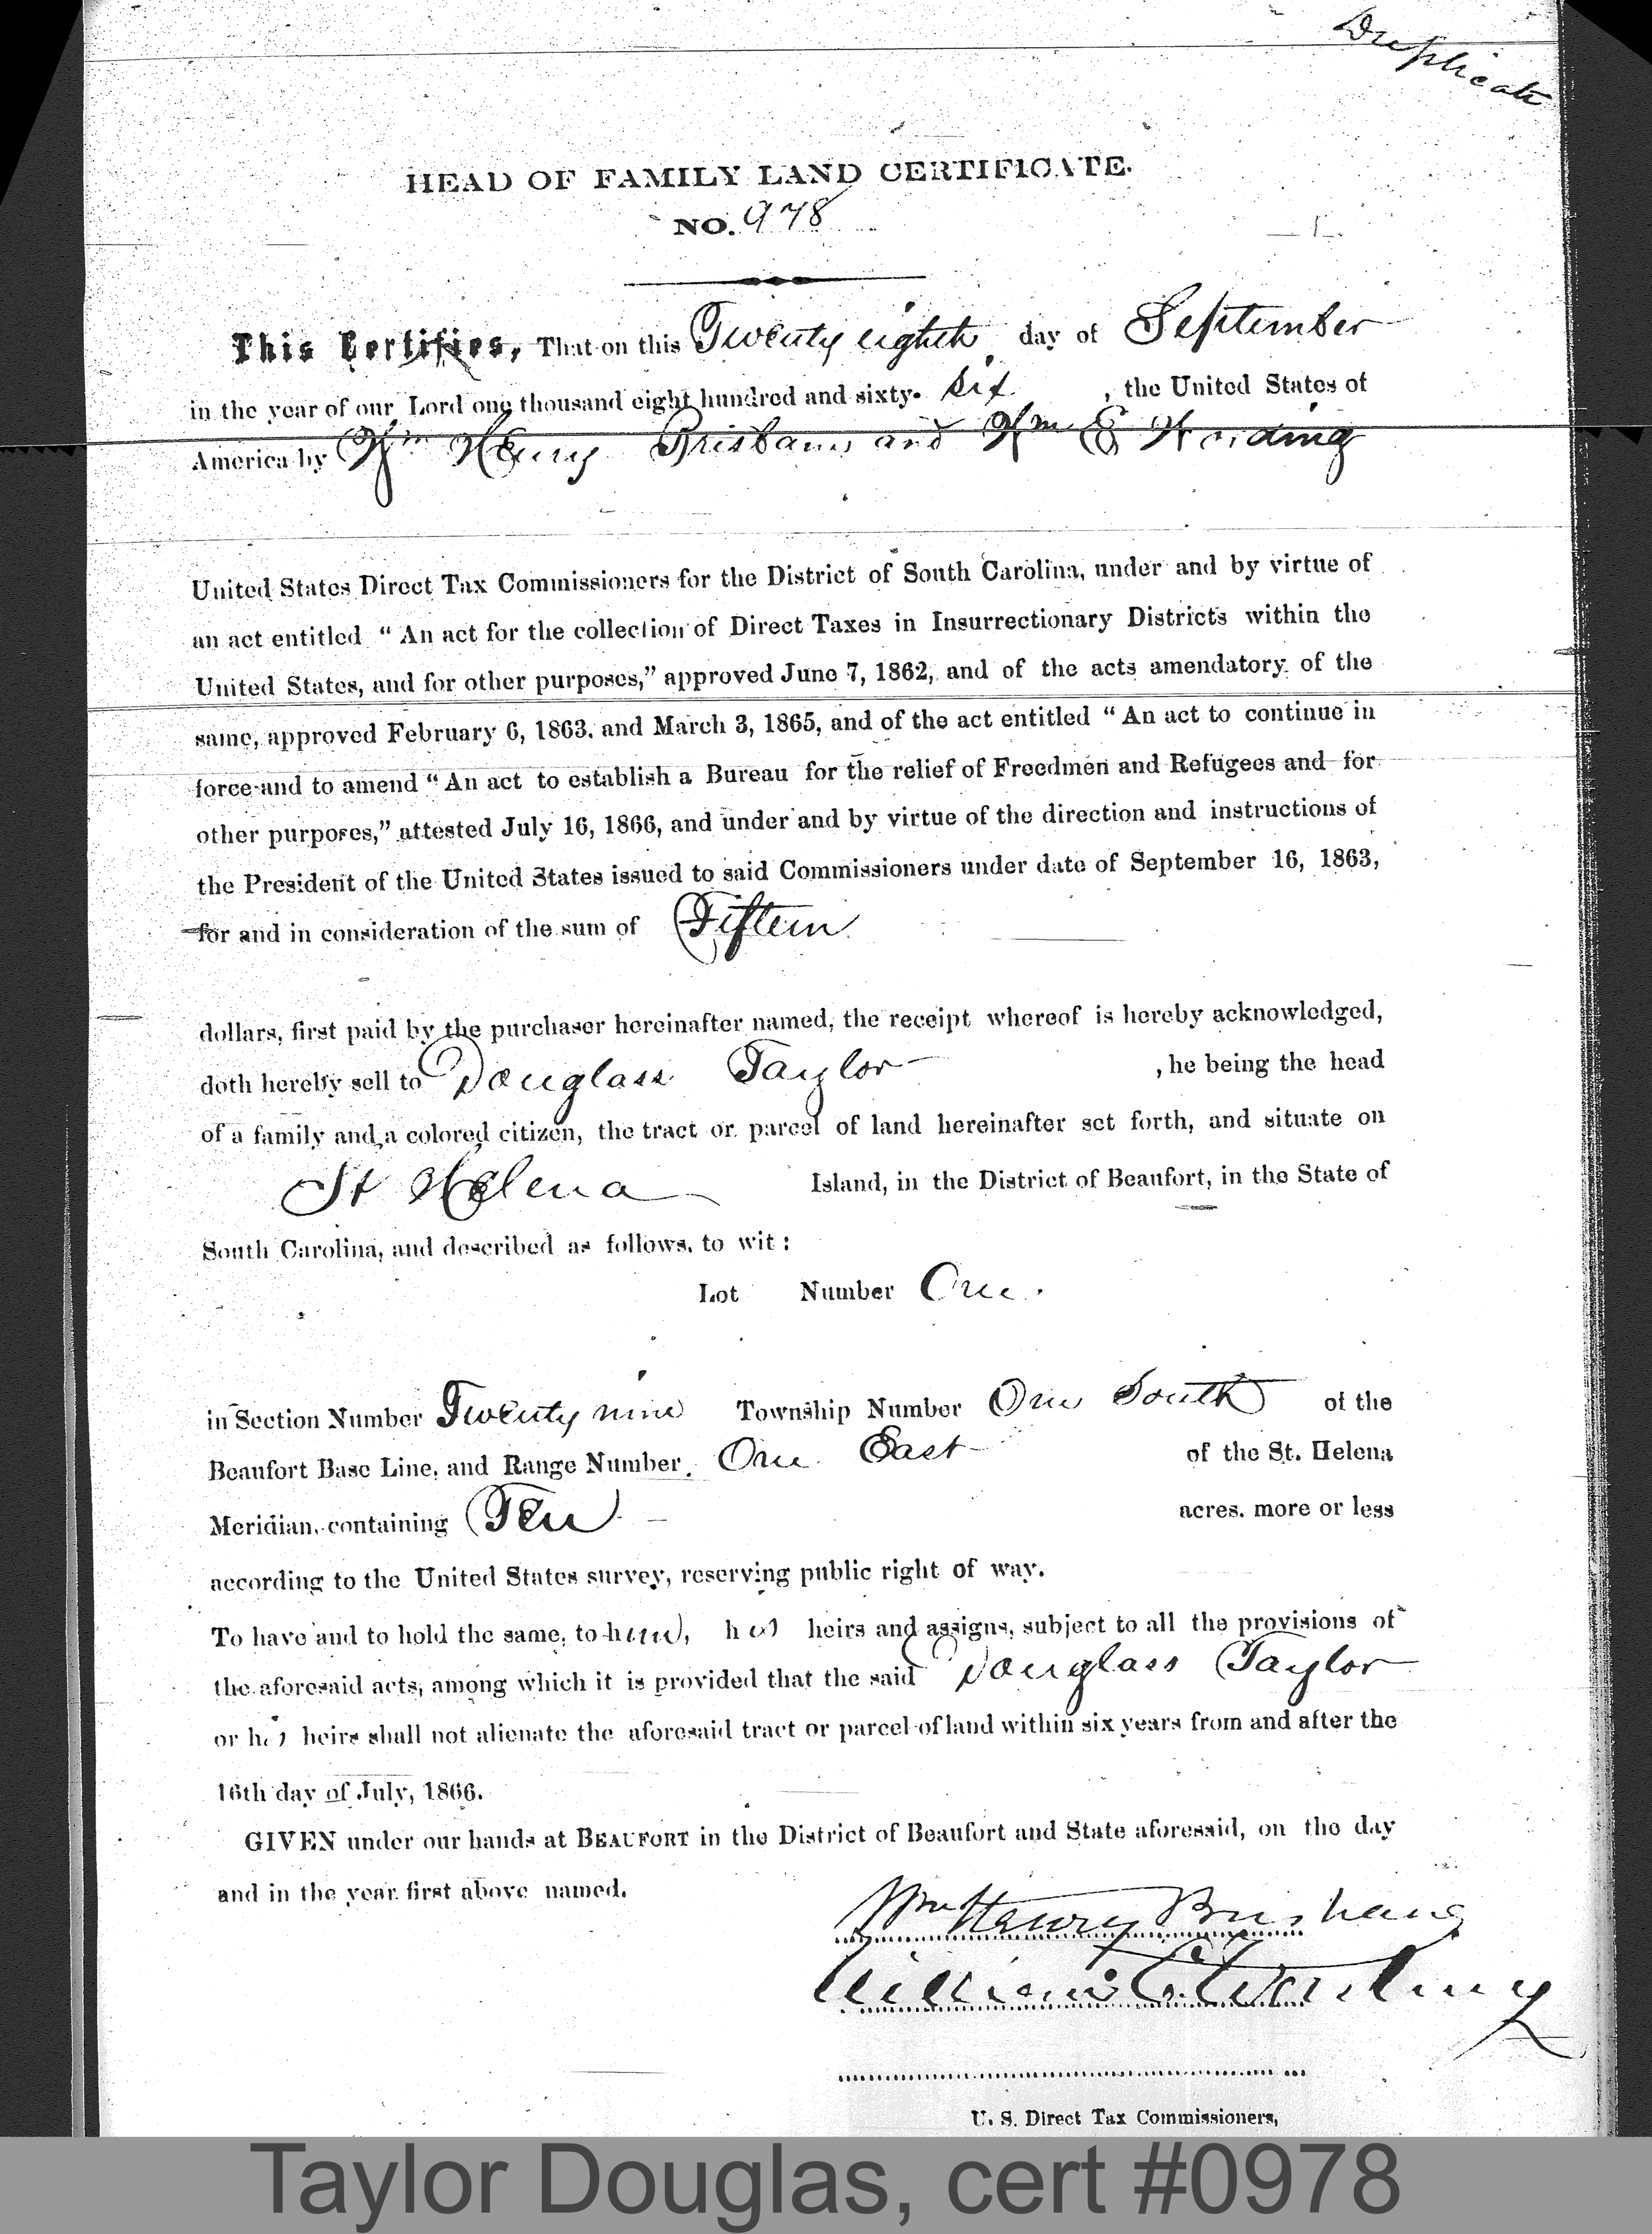 Duplicate
HEAD OF FAMILY LAND CERTIFICATE.
NO. 978
This Certifies, That on this Twenty eighth day of September
in the year of our Lord one thousand eight hundred and sixty- six , the United States of
America by Wm Henry Brisbane and Wm E Wording
United States Direct Tax Commissioners for the District of South Carolina, under and by virtue of
an act entitled “ An act for the collection of Direct Taxes in Insurrectionary Districts within the
United States, and for other purposes,” approved June 7, 1862, and of the acts amendatory of the
same, approved February 6, 1863, and March 3, 1865, and of the act entitled “ An act to continue in
force and to amend “ An act to establish a Bureau for the relief of Freedmen and Refugees and for
other purposes,” attested July 16, 1866, and under and by virtue of the direction and instructions of
the President of the United States issued to said Commissioners under date of September 16, 1863,
for and in consideration of the sum of Fifteen
dollars, first paid by the purchaser hereinafter named, the receipt whereof is hereby acknowledged,
doth hereby sell to Douglass Taylor , he being the head
of a family and a colored citizen, the tract or parcel of land hereinafter set forth, and situate on
St Helena Island, in the District of Beaufort, in the State of
South Carolina, and described as follows, to wit :
Lot Number One.
in Section Number Twenty nine Township Number One South of the
Beaufort Base Line, and Range Number One East of the St. Helena
Meridian, containing Ten acres, more or less
according to the United States survey, reserving public right of way.
To have and to hold the same, to him, his heirs and assigns, subject to all the provisions of
the aforesaid acts, among which it is provided that the said Douglass Taylor
or his heirs shall not alienate the aforesaid tract or parcel of land within six years from and after the
16th day of July, 1866.
GIVEN under our hands at BEAUFORT in the District of Beaufort and State aforesaid, on the day
and in the year first above named.
Wm Henry Brisbane
William E. Wording
U. S. Direct Tax Commissioners,
Taylor Douglas, cert #0978